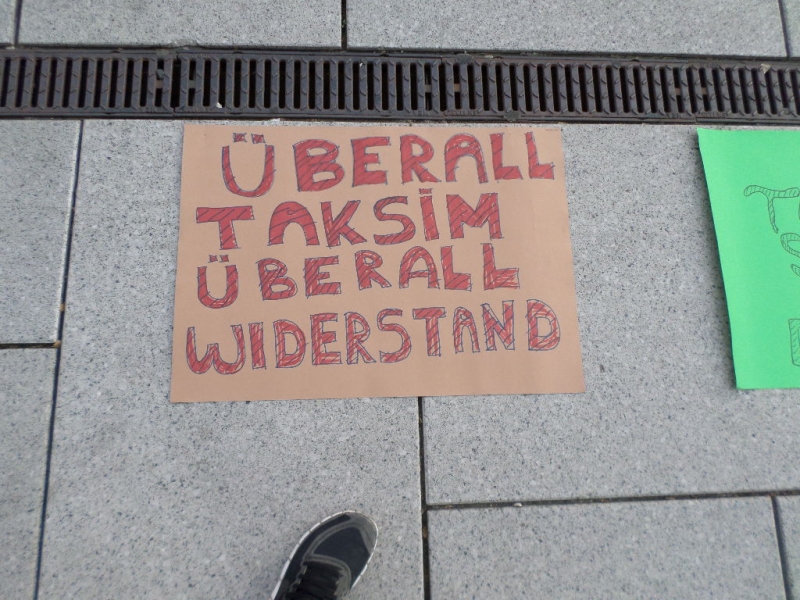 ÜBERALL
TAKSİM
ÜBERALL
WIDERSTAND